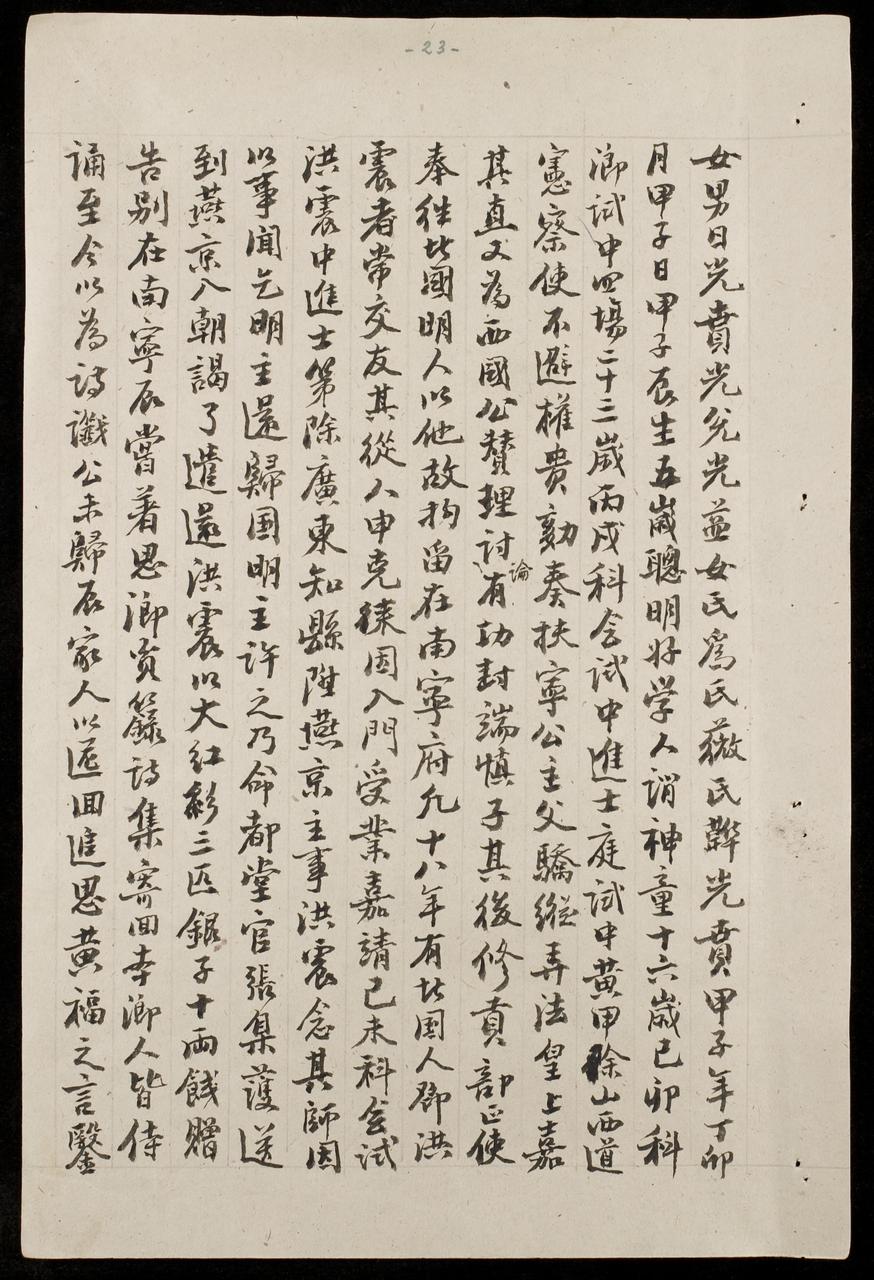 -23-
女男日光賁光兊光益女氏寫氏薇氏鞸光賁甲子年丁卯
月甲子日甲子辰生五歲聰明好学人謂神童十六歲己卯科
鄉試中四塲二十三歲丙戍科会試中進士庭試中黄甲除山西道
憲察使不避權贵劾奏扶寧公主父驕縱弄法皇上嘉
其直又為西國公賛理討論有功封端慎子其後修貢部正使
奉徃北國明人以他故拘畄在南寧府凢十八年有北国人鄧洪
震者常交友其從人申克猿固入門受業嘉請己未科会試
洪震中進士第除廣東知縣陞燕京主事洪震念其師因
以事闻乞明主還歸国明主許之乃命都堂官張臬護送
到燕京入朝謁了遣還洪震以大紅彩三匹銀子十両餞贈
告别在南寧辰嘗著思鄉貢籙詩集寄回本鄉人皆侍
誦至今以為詩讖公未歸辰家人以匜回追思黄福之言鑿